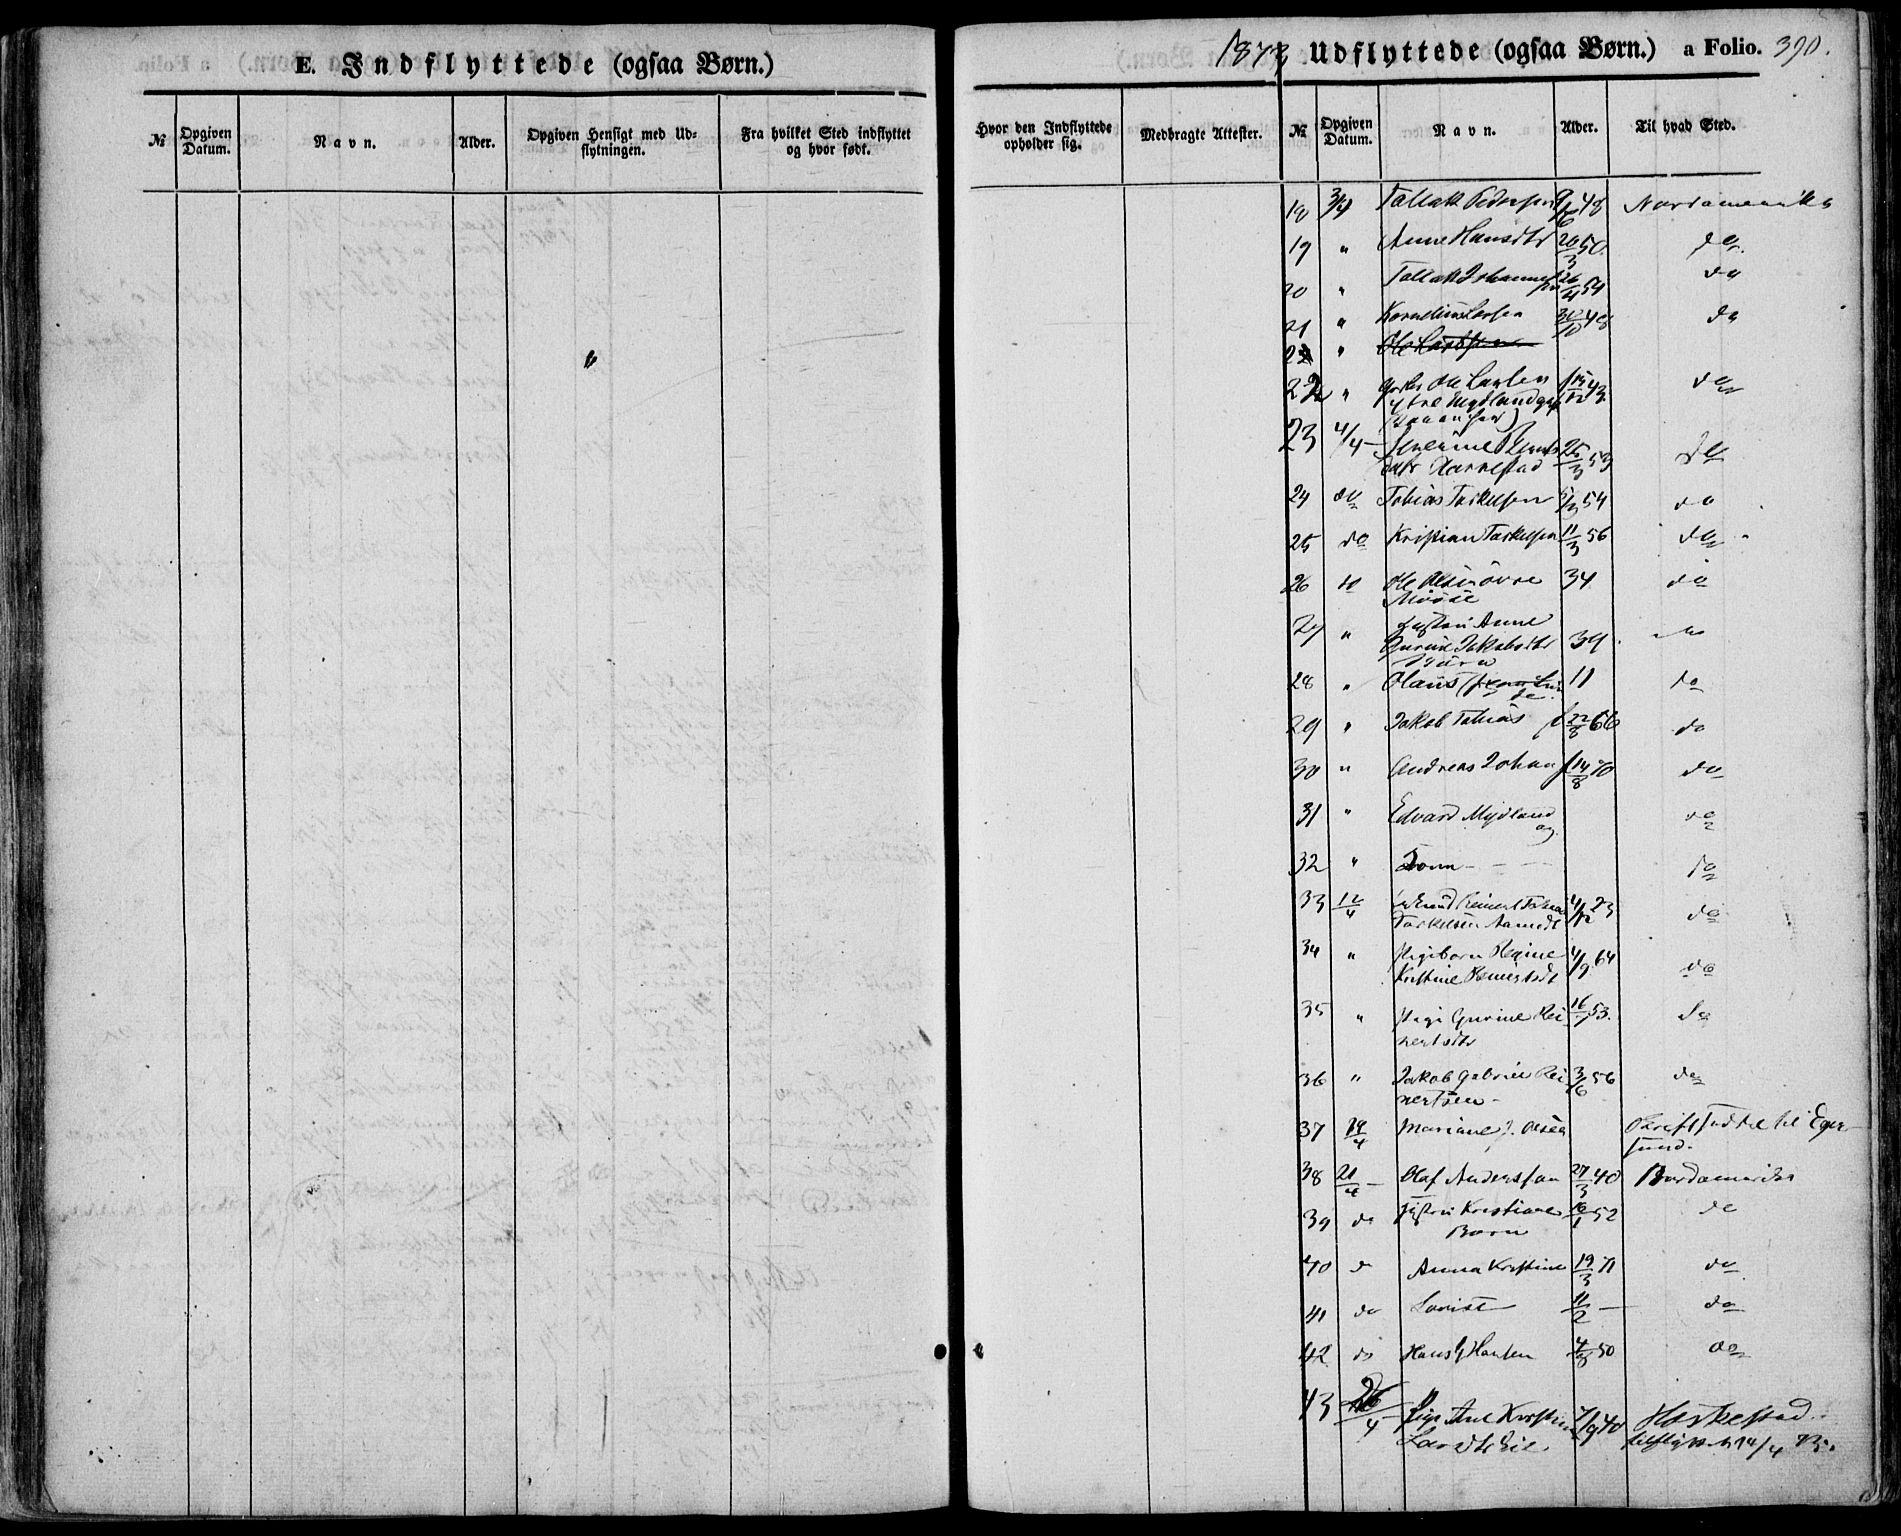 E. Indflyttede (ogsaa Børn.)
№
Opgiven Datum.
Navn.
Alder.
Opgiven Hensigt med Udflytningen.
Fra hvilket Sted indflyttet og hvor født.
1873 Udflyttede (ogsaa Børn.) a Folio. 390.
Hvor den Indflyttede opholder sig.
Medbragte Attester.
№
Opgiven Datum.
Navn.
Alder.
Til hvad Sted.
18 3/4 Tallak Pedersen 48 Nordamerika
19 " Anne Hansdtr 20/3 50. do
20 " Tallak Johannes 54 do
21 " Kornelius Larsen 30/10 48 do
22 " Ole Larsen
22 " Ole Larsen f 15/12 43 do
ytre Mydland
23 4/4 Severine
25/3 53 do
24 do Tobias Torkelsen 54 do
25 do Kristian Torkelsen 11/3 56 do
26 do Ole Olsen øvre 34 do
27 " Hustru Anne
Gurine Jakobsdtr 34 do
Børn
28 " Olaus 11 do
29 " Jakob Tobias f 22/8 66 do
30 " Andreas Johan f 14/8 70 do
31 " Edvard Mydland do
og
32 " Tonn — — — do
33 12/4 Reinert
Torkelsen Aamodt 23 do
34 " Pigebarn Regine 4/9 64
Kristine Reinertsdt do
35 " Pige Gurine Rei 53. do
nertsdtr
36 " Jakob Gabriel Rei 3/6 56 do
nertsen
37 19/4 Mariane J. Olsen til Eger
sund.
38 21/4 Olaf Anderssen 27/3 40 Nordamerika
39 do Hustru Kristiane 16/1 52 do
Børn
40 d Anna Kristine 19/3 71 do
41 do Lovise 11/2 — do
42 do Hans Hansen 50 do
43 26/4 Pige Ane Kristine 7/9 40 Heskestad
14/4 73.